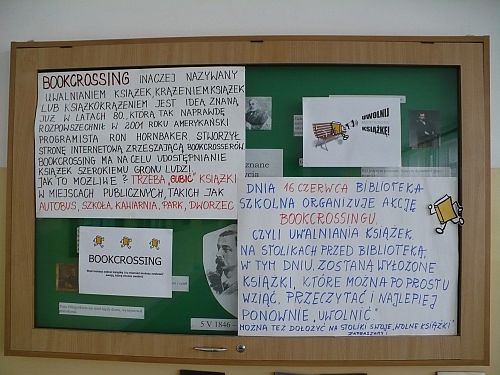 BOOKCROSSING INACZEJ NAZYWANY
UWALNIANIEM KSIĄŻEK, KRĄŻENIEM KSIĄŻEK
LUB KSIĄŻKOKRĄŻENIEM JEST IDEĄ ZNANĄ
JUŻ W LATACH 80., KTÓRĄ TAK NAPRAWDĘ
ROZPOWSZECHNIŁ W 2001 ROKU AMERYKAŃSKI
PROGRAMISTA RON HORNBAKER. STWORZYŁ
STRONĘ INTERNETOWĄ ZRZESZAJĄCĄ BOOKCROSSERÓW
BOOKCROSSING MA NA CELU UDOSTĘPNIANIE
KSIĄŻEK SZEROKIEMU GRONU LUDZI.
JAK TO MOŻLIWE? TRZEBA „GUBIĆ" KSIĄŻKI
W MIEJSCACH PUBLICZNYCH, TAKICH JAK
AUTOBUS, SZKOŁA, KAWIARNIA, PARK, DWORZEC
UWOLNIJ
KSIĄŻKĘ!
DNIA 16 CZERWCA BIBLIOTEKA
SZKOLNA ORGANIZUJE AKCJĘ
BOOKCROSSINGU,
CZYLI UWALNIANIA KSIĄŻEK
NA STOLIKACH PRZED BIBLIOTEKĄ,
W TYM DNIU, ZOSTANĄ WYŁOŻONE
KSIĄŻKI, KTÓRE MOŻNA PO PROSTU
WZIĄĆ, PRZECZYTAĆ I NAJLEPIEJ
PONOWNIE „UWOLNIĆ."
MOŻNA TEŻ DOŁOŻYĆ NA STOLIKI SWOJE „WOLNE KSIĄŻKI"
ZAPRASZAMY!
BOOKCROSSING
5 V 1846 –